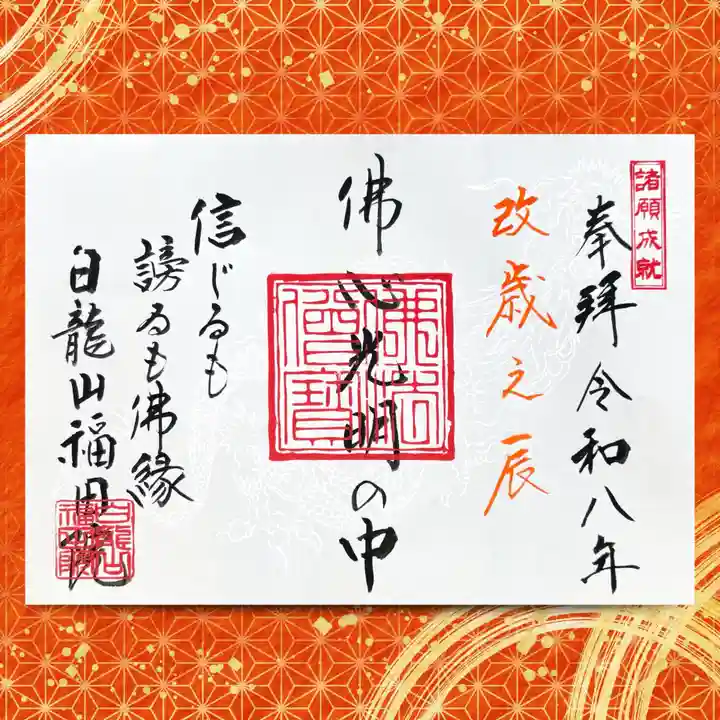 諸願成就
奉拜令和八年
改歳之辰
佛心光明の中
佛法僧寳
信じるも
謗るも佛縁
白龍山福田院